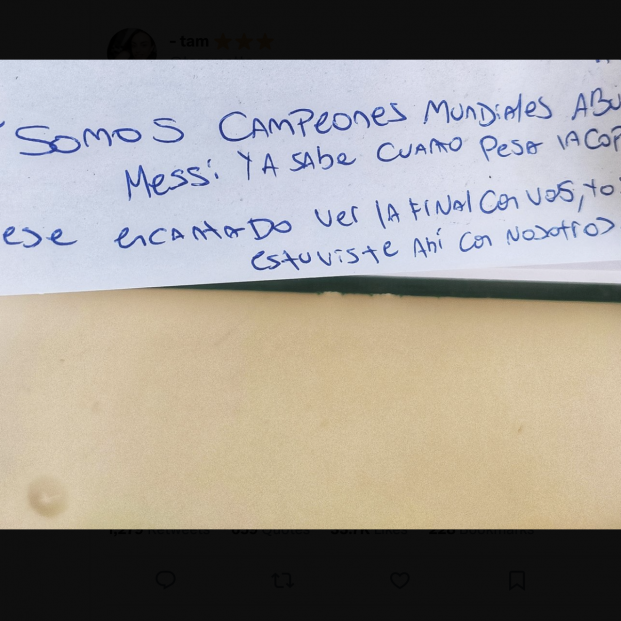 - tam
SOMOS CAMPEONES MUNDIALES ABU
MESSI YA SABE CUANTO PESA LA COP
ESE ENCANTADO VER LA FINAL CON VOS, YO
ESTUVISTE AHÍ CON NOSOTROS